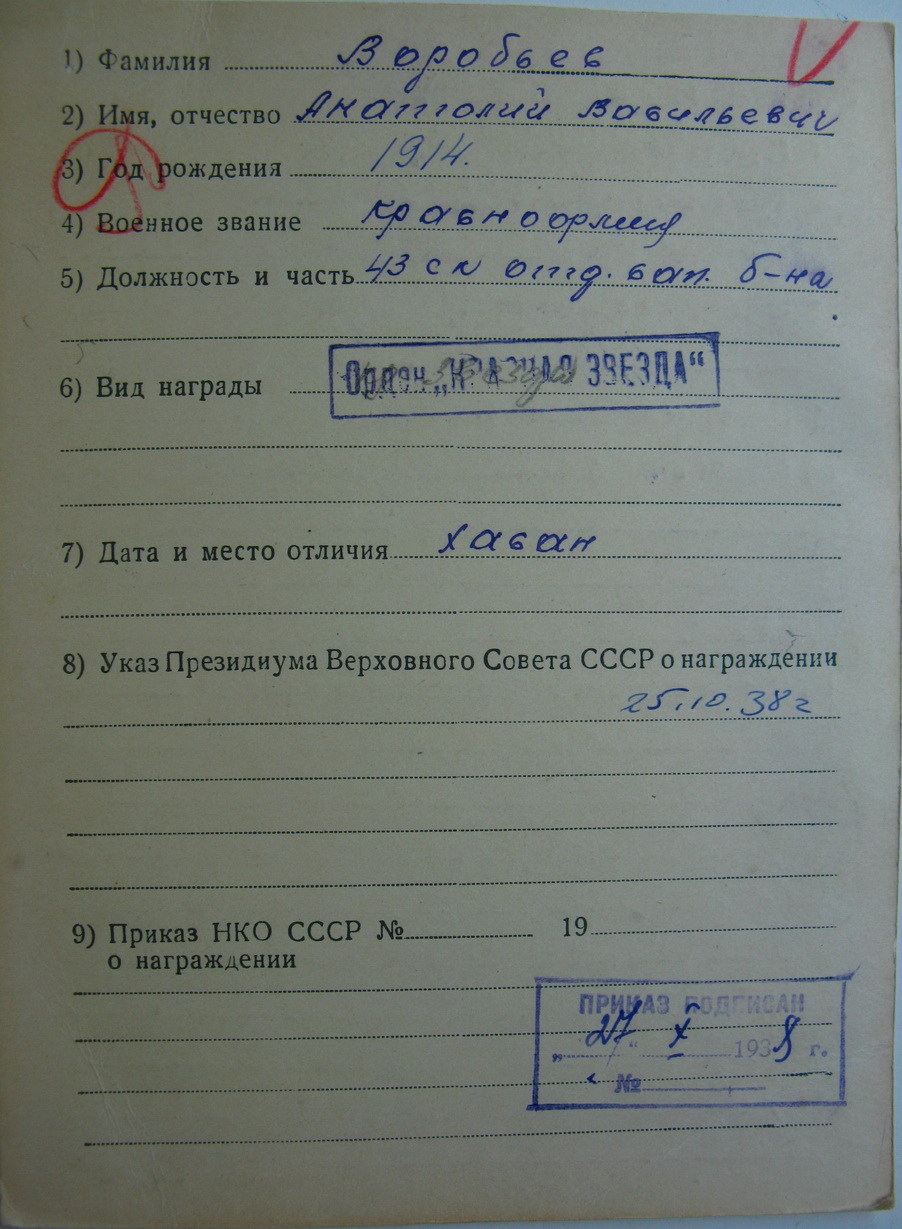 1) Фамилия Воробьев
2) Имя, отчество Анатолий Васильевич
3) Год рождения 1914.
4) Военное звание красноармеец
5) Должность и часть 43 ск отд. сап. б-на
6) Вид награды Орден „КРАСНАЯ ЗВЕЗДА“
7) Дата и место отличия Хасан
8) Указ Президиума Верховного Совета СССР о награждении
25.10.38 г
9) Приказ НКО СССР № 19
о награждении
ПРИКАЗ ПОДПИСАН
„27“ X 1938 г.
№